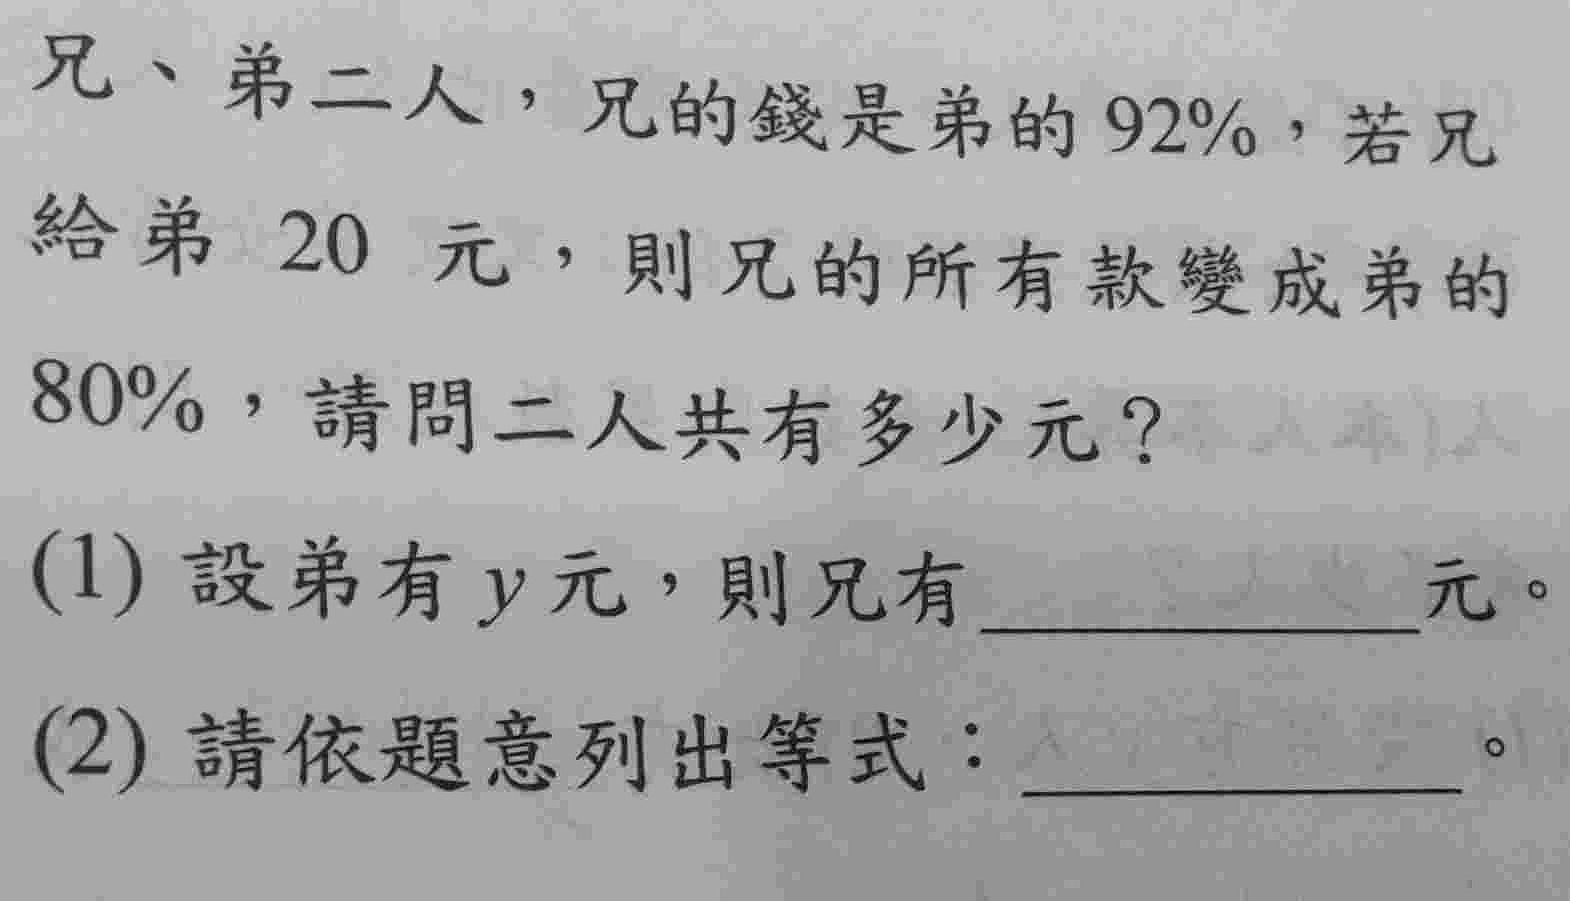 兄、弟二人，兄的錢是弟的 92%，若兄
給弟 20 元，則兄的所有款變成弟的
80%，請問二人共有多少元？
(1) 設弟有 y 元，則兄有__________元。
(2) 請依題意列出等式：__________。